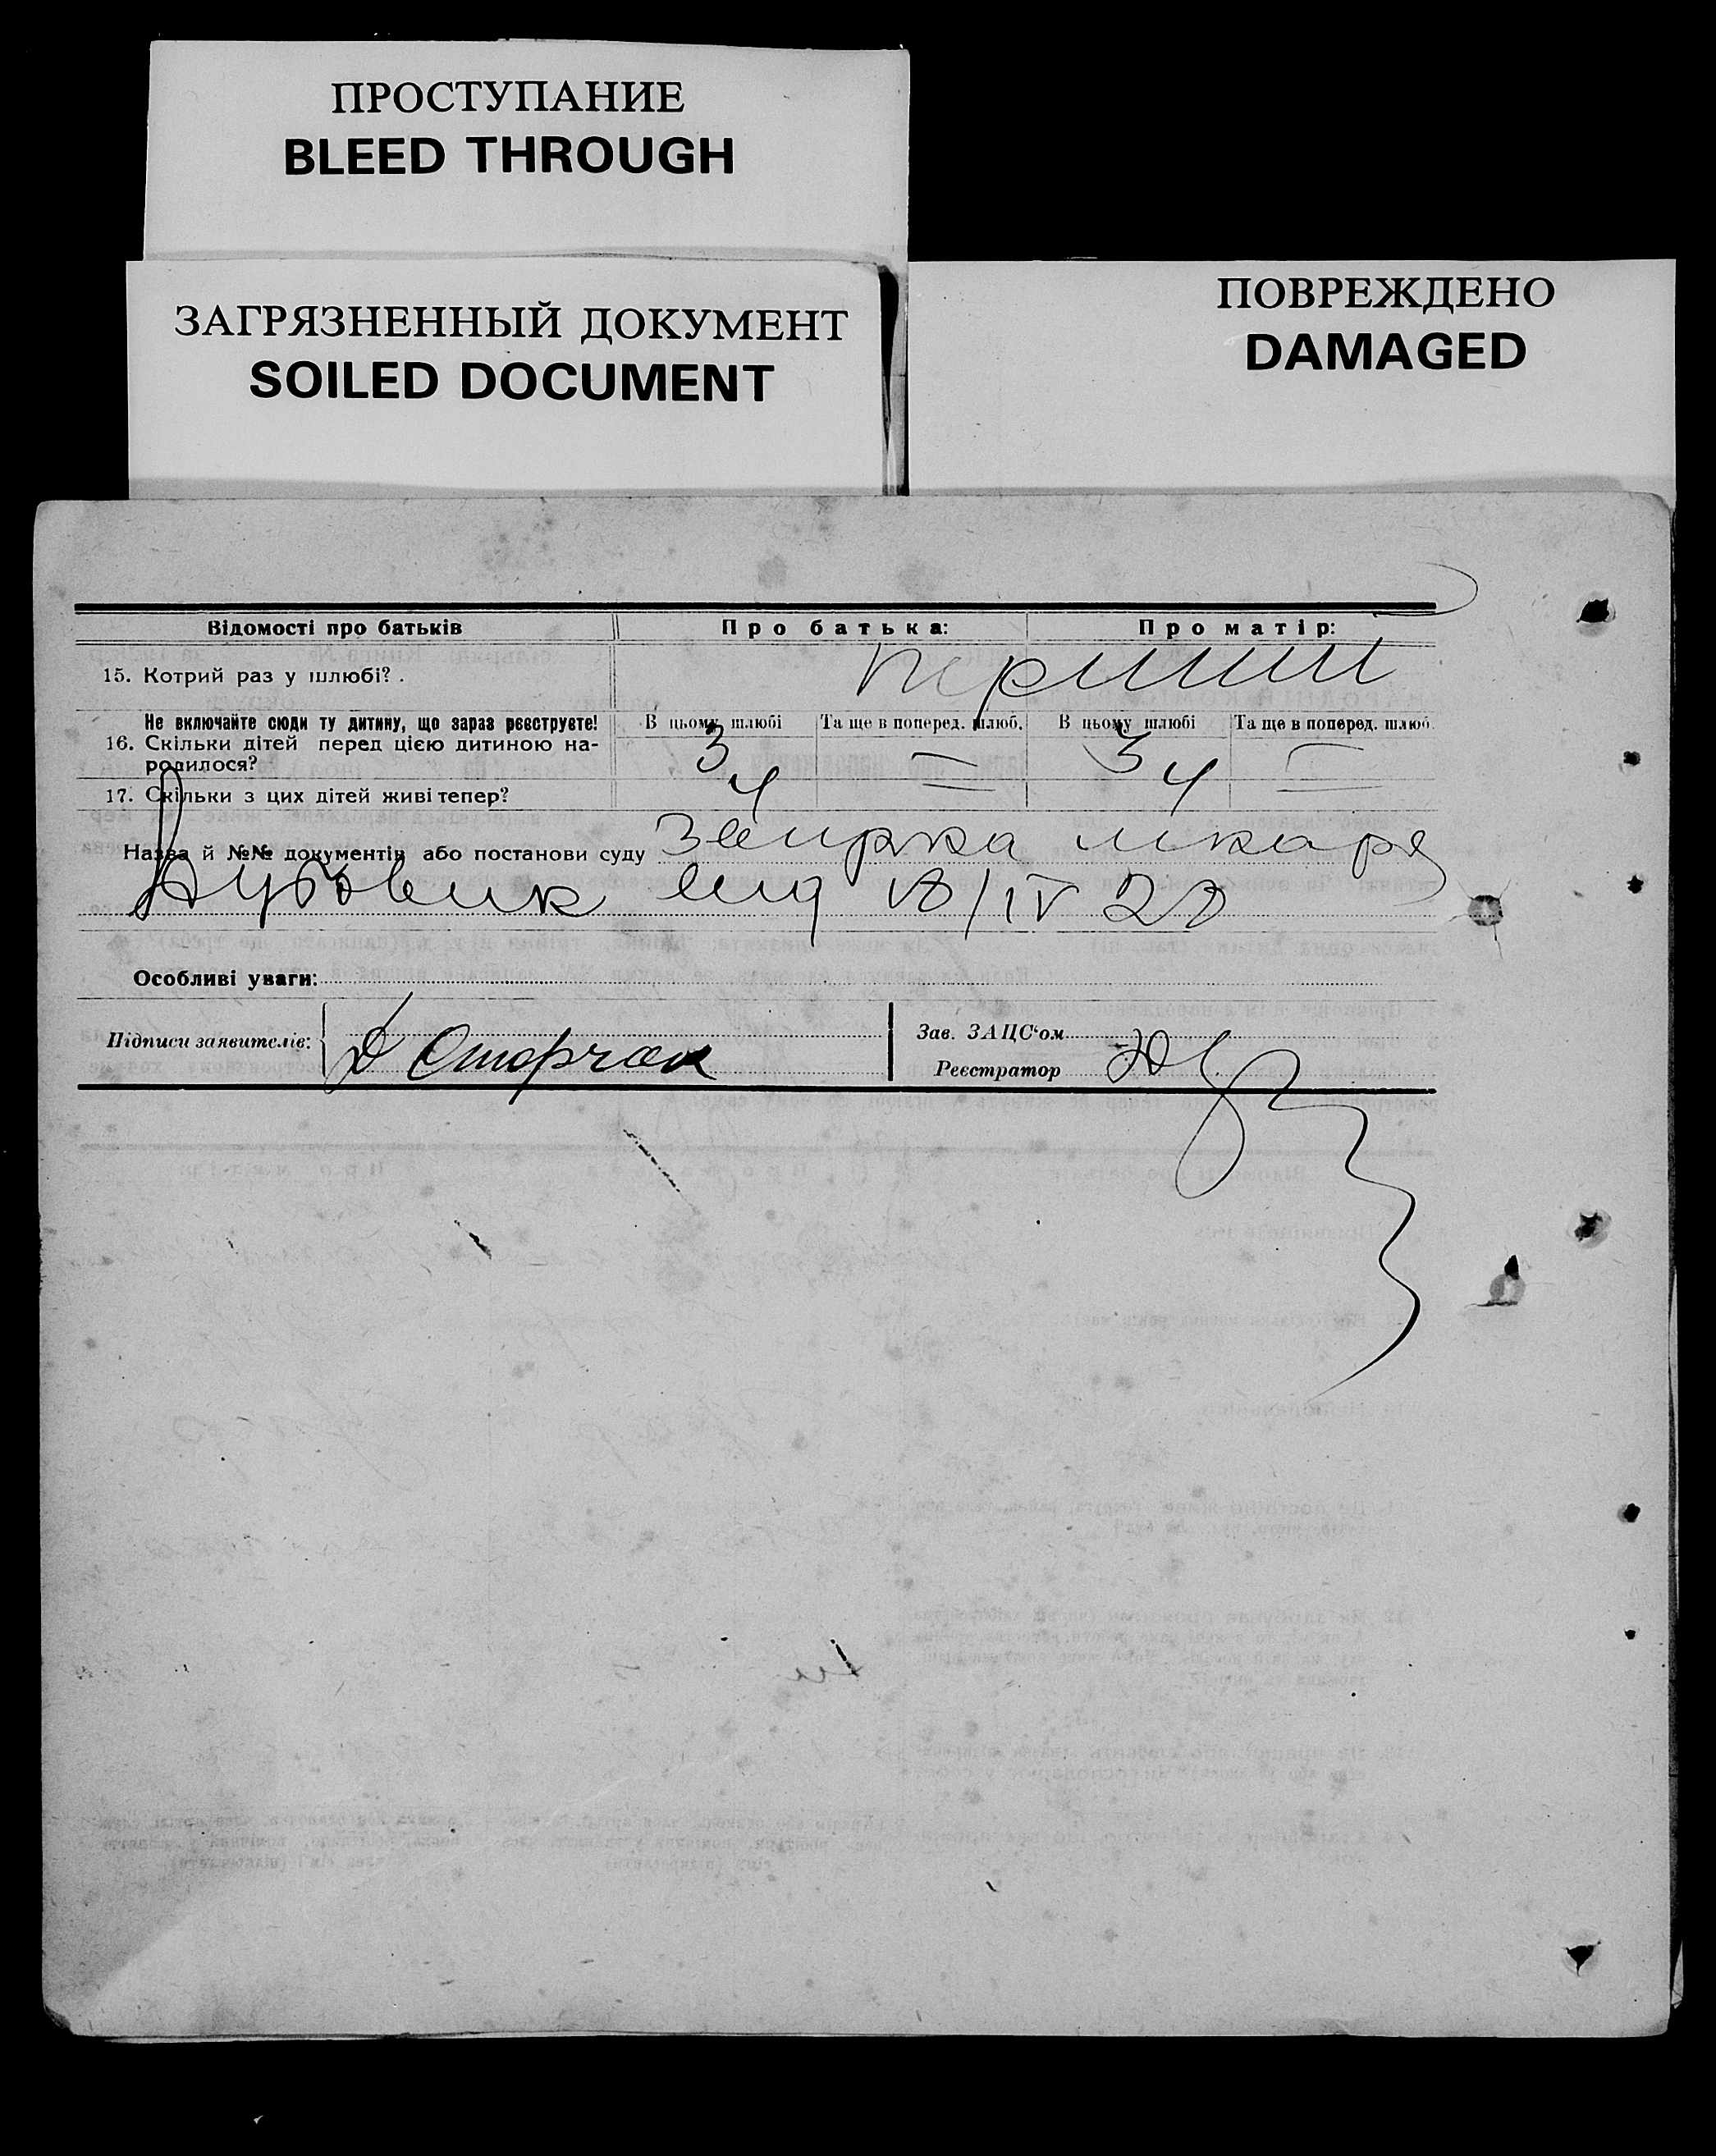 ПРОСТУПАНИЕ
BLEED THROUGH
ЗАГРЯЗНЕННЫЙ ДОКУМЕНТ
SOILED DOCUMENT
ПОВРЕЖДЕНО
DAMAGED
Відомості про батьків Про батька: Про матір:
15. Котрий раз у шлюбі? . перший
Не включайте сюди ту дитину, що зараз реєструєте! В цьому шлюбі Та ще в поперед. шлюб. В цьому шлюбі Та ще в поперед. шлюб.
16. Скільки дітей перед цією дитиною на-
родилося? 3 — 3 —
17. Скільки з цих дітей живі тепер? 4 — 4 —
Назва й №№ документів або постанови суду лікаря
від 18/IV 28
Особливі уваги:
Підписи заявителів: Зав. ЗАЦС'ом
Реєстратор